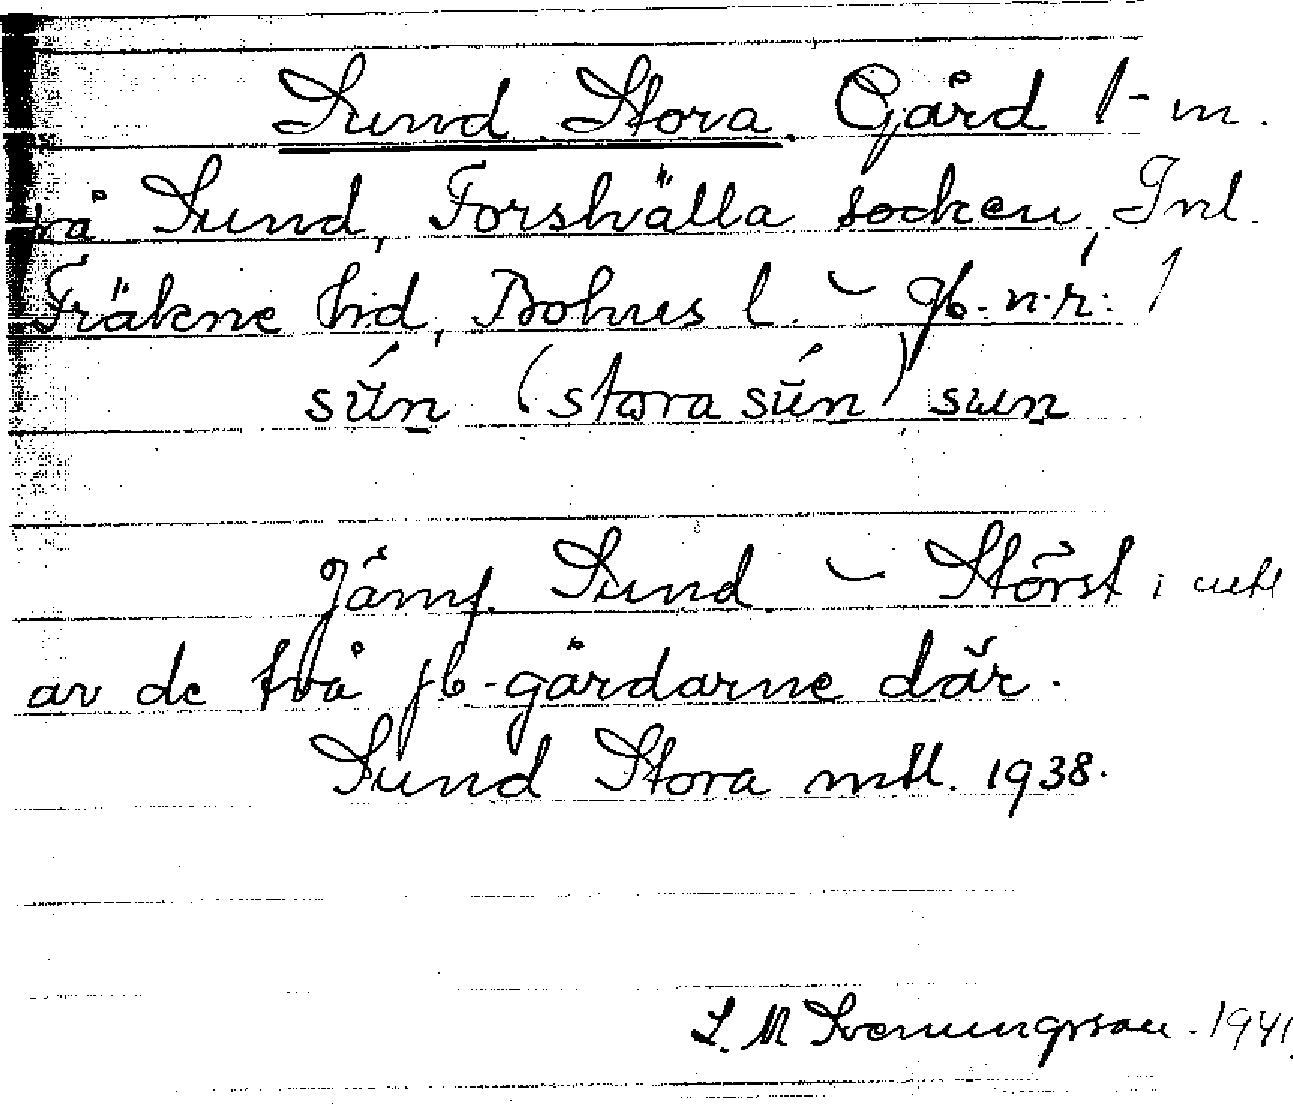 Sund Stora. Gård 1 - m.
på Sund, Forshälla socken, Inl.
Fräkne hd, Bohus l. – gb. n:r: 1
sún (stora sún) sun
Jämf. Sund – Störst i mtl
av de två jb-gårdarne där.
Sund Stora mtl. 1938.
S. M Svenungsson. 1941.